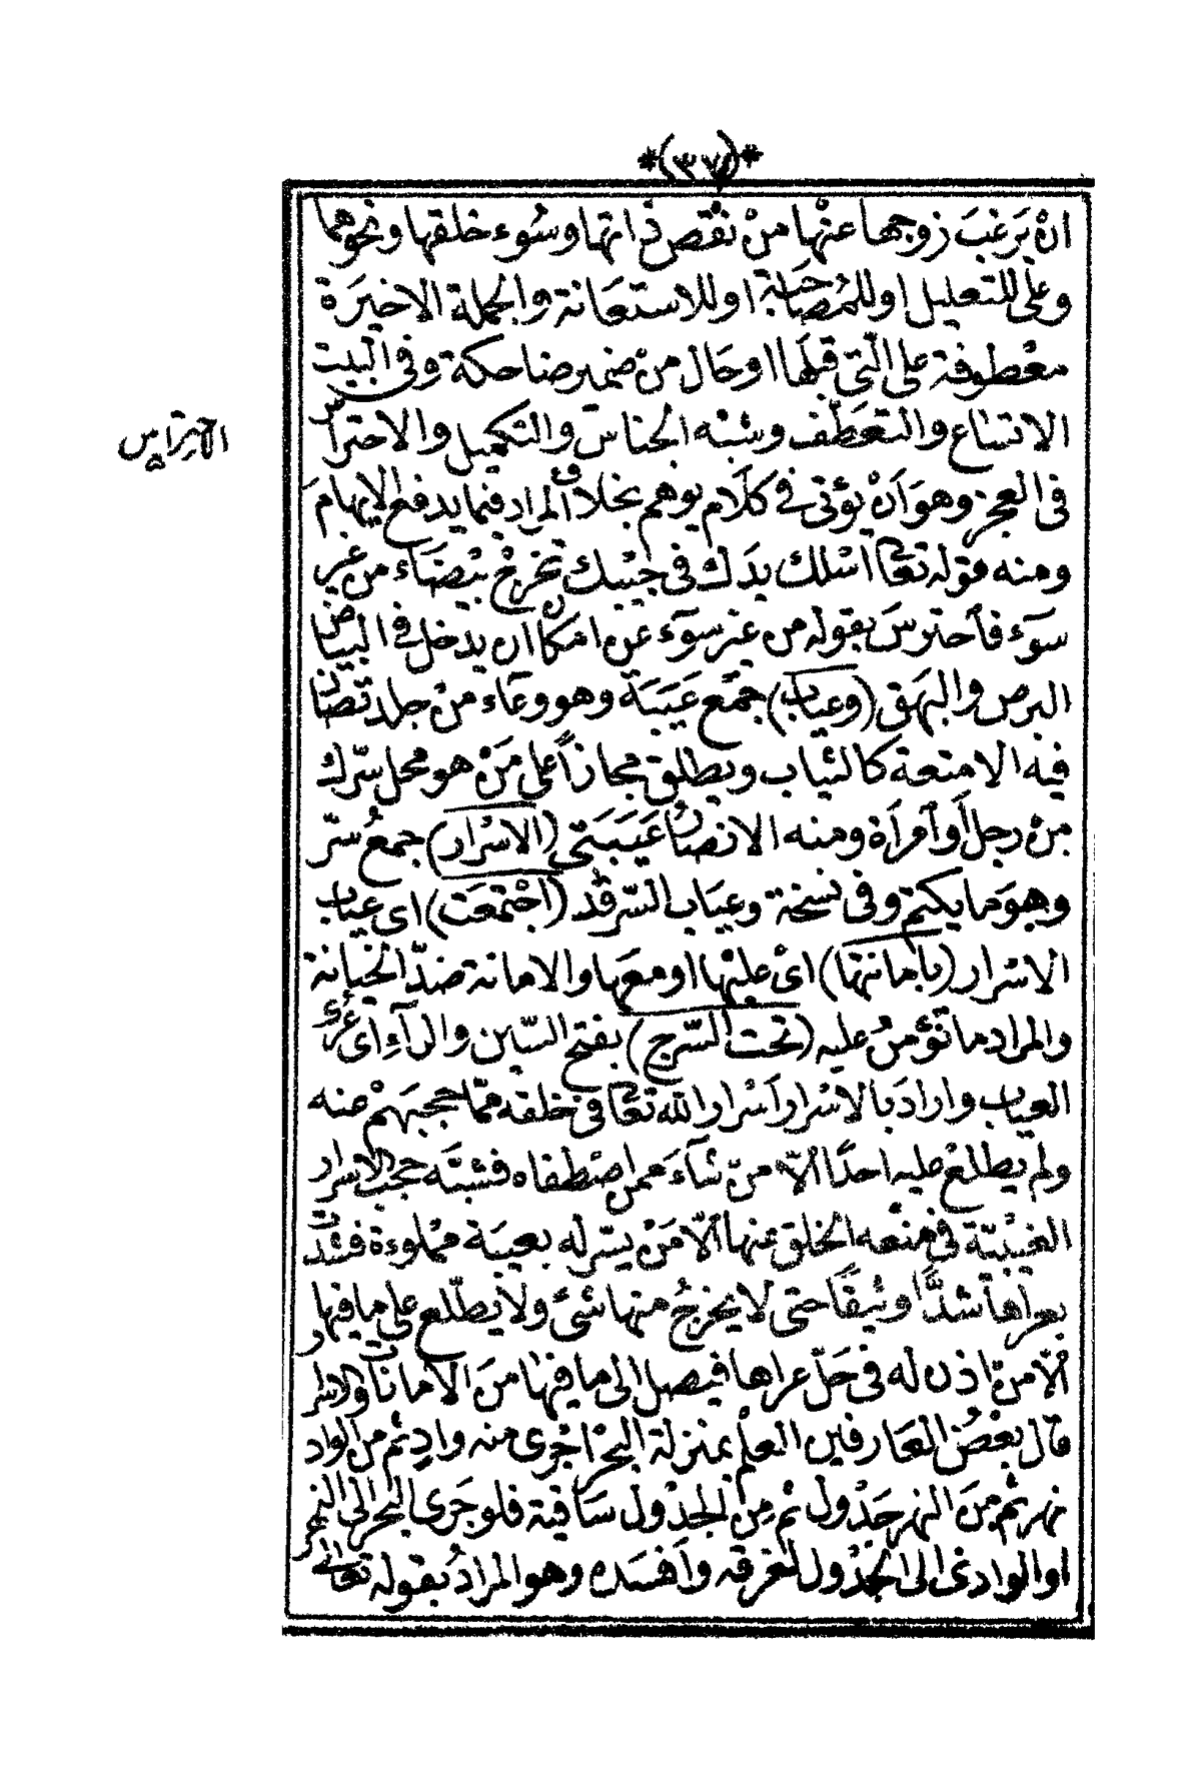 *(٣٧)*
انْ يَرغبَ زوجها عنْها منْ نقْص ذاتها وسُوء خلقها ونحوهما
وعلى للتعليل اوللمُصَاحَبَة اوللاستعَانة والجملة الاخيرَة
معْطوفة على الّتى قبلَها اوحَال منْ ضميرضاحكة وفى البيت
الاتساع والتعَطّف وشبْه الجناس والتكميل والاحتراس
الاحتراس
فى العجز وهوَ اَنْ يؤتى فى كلَام يوهم بخلاف المراد فيما يدفع الايهامَ
ومنه قوله تعالى اسْلك يدَك فى جيْبك تخرجْ بيْضَاء من غير
سوٓء فاحترسَ بقوله من غير سوٓء عن امكان ان يدخل فى البياض
البرص والبهَق (وعياب) جمْع عَيبَة وهو وعَاء منْ جلد تصَان
فيه الامتعة كالثياب ويطلق مجازاً على مَنْ هو محل سّرك
منْ رجل اَو اَمراَة ومنه الانصَار عَيبَتى (الاسْرار) جمعُ سّر
وهوَ ما يكتم وفى نسخة وعيَاب السّر قَد (اجْتمعَت) اى عياب
الاسْرار (بامانتها) اىْ عليْها اومعَها والامانة ضدّ الخيانة
والمراد ما تؤمنُ عليه (تحت السّرج) بفتح السّين والرآءِ اى عُرى
العياب وارادَ بالاسْرار اَسْرار الله تعالى فى خلقه ممّا حجبَهمْ منه
ولم يطلعْ عليه احدًا الّا منْ شآءَ ممن اصْطفاه فشبّه حجب الاسرار
الغيْبيّة فى منْعه الخلق عنها الّا مَنْ يسّر له بعيبَة ممْلوءة فشدّت
بعراها شدًّا وثيقًا حتى لا يخرجُ منها شئ ولا يطّلع على ما فيها
الّا منْ اذن له فى حَلّ عراها فيصل الى ما فيها منَ الامانات والاسرار
قال بعْضُ العَارفين العلم بمنزلة البحْر اجْرى منه وادٍ ثم من الواد
نهر ثم منَ النهر جَدْول ثم مِن الجدْول سَاقية فلو جَرى البحر الى النهر
او الوادى الى الجدْول لغرقه واَفسَده وهو المرادُ بقوله تعالى